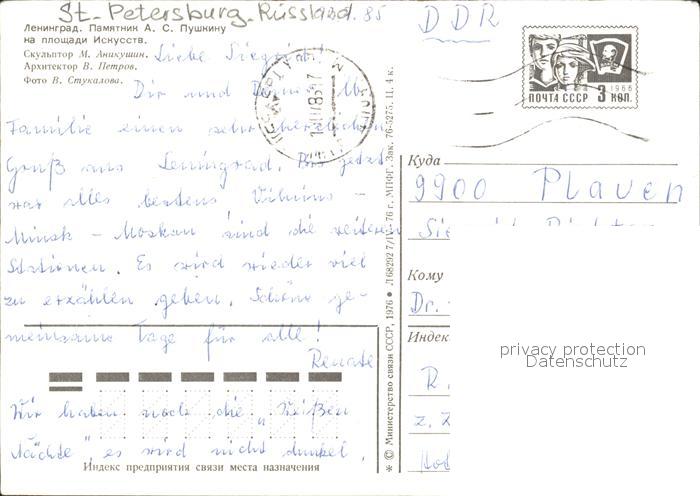 St. Petersburg Russland. 85
Ленинград. Памятник А. С. Пушкину
на площади Искусств.
Скульптор М. Аникушин.
Архитектор В. Петров.
Фото В. Стукалова.
Liebe
Dir und
Familie einen sehr herzlichen
Gruß aus Leningrad. Bis jetzt
war alles bestens Vilnius –
Minsk – Moskau sind die weiteren
Stationen. Es wird wieder viel
zu erzählen geben. Schöne ge-
meinsame Tage für alle!
Renate
Wir haben noch die „Weißen
Nächte", es wird nicht dunkel.
Индекс предприятия связи места назначения
* © Министерство связи СССР, 1976 • Л68292 7/IV-76 г. МПФГ. Зак. 76-5275. Ц. 4 к.
DDR
1966
ПОЧТА СССР 3 КОП.
Куда
9900 Plauen
Кому
Dr.
Индекс
R.
z. Z.
privacy protection
Datenschutz